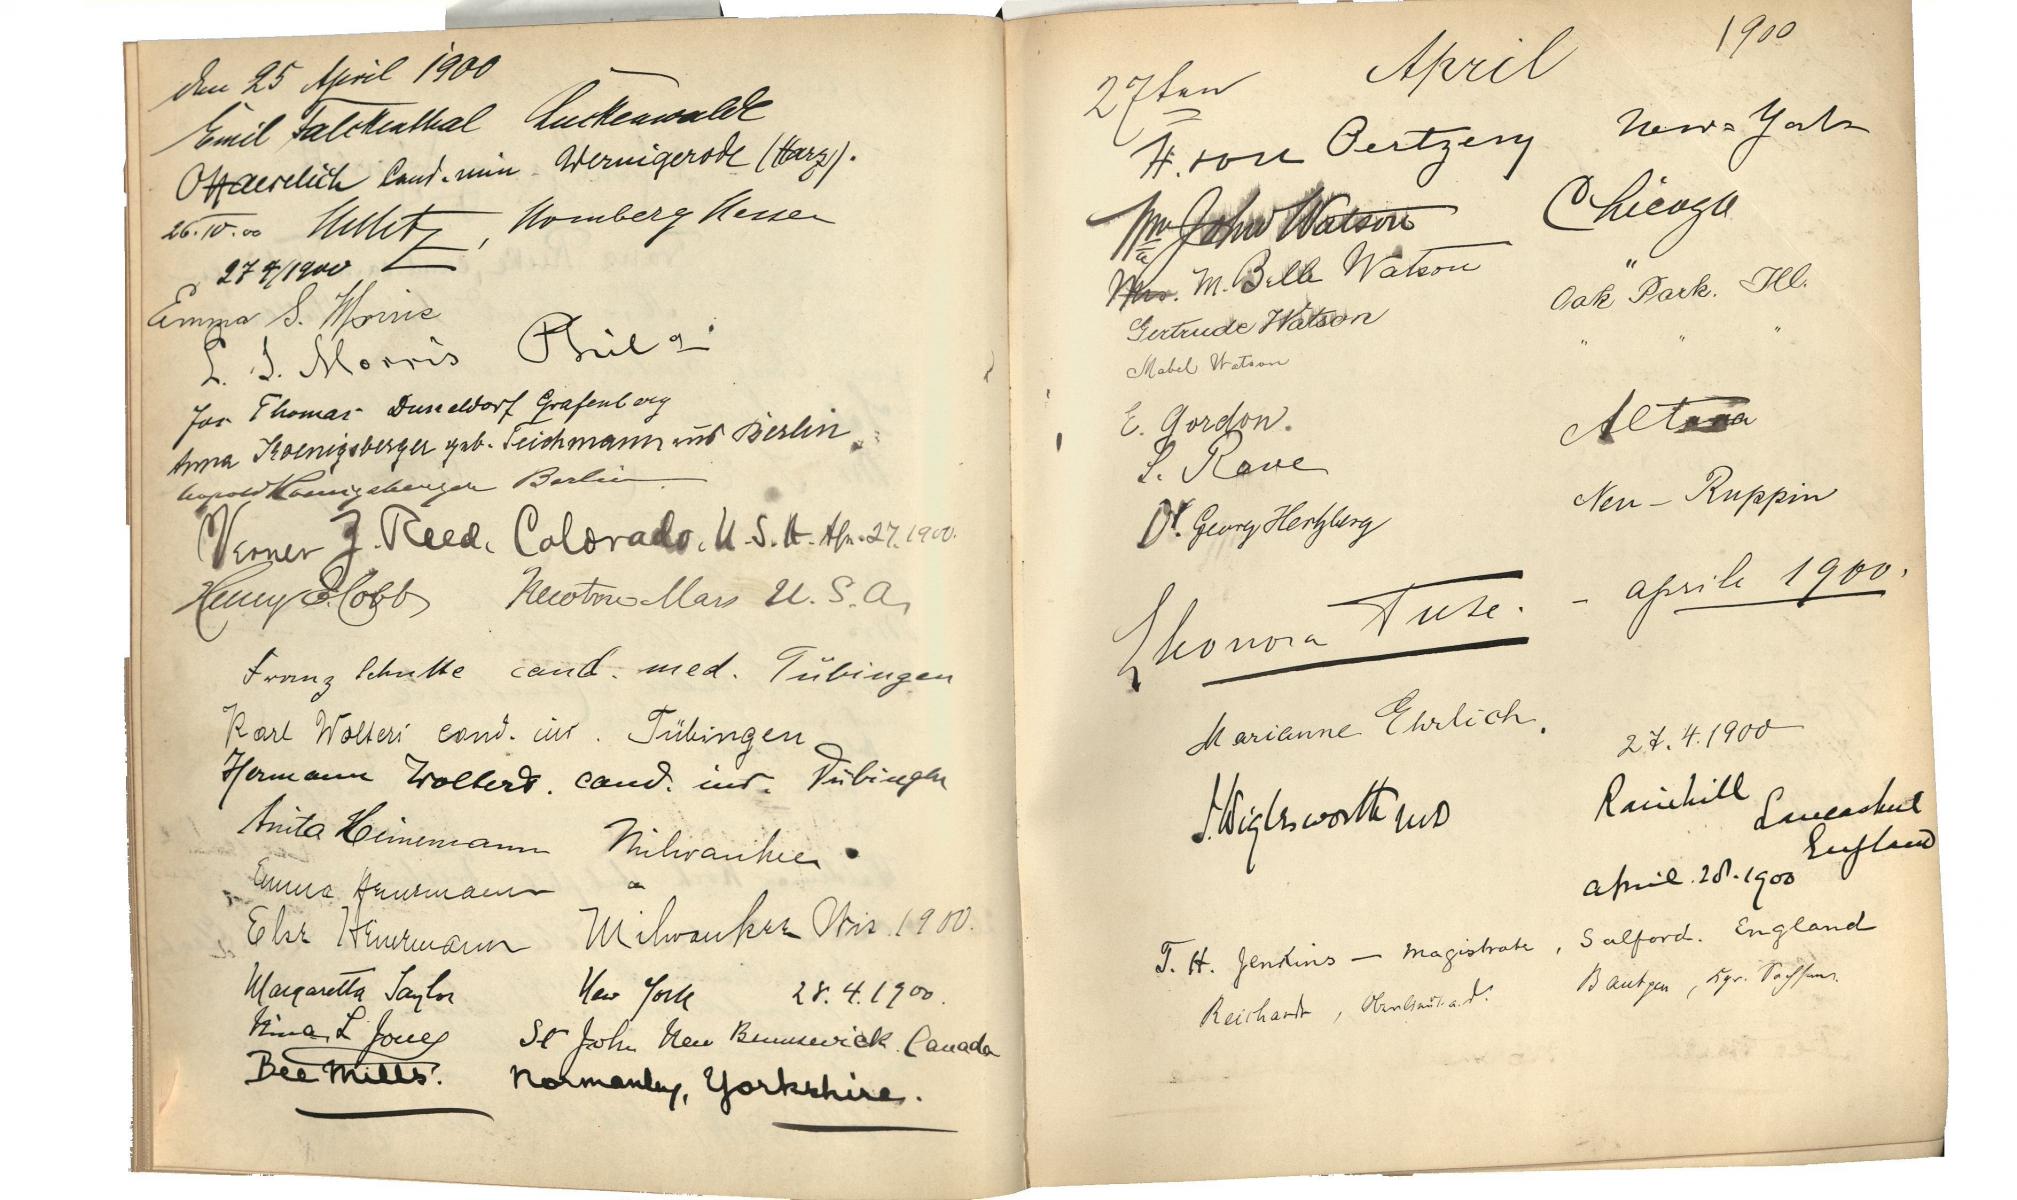 den 25 April 1900
Emil Falckenthal Luckenwalde
cand. min Wernigerode (Harz).
26.IV.00 Homberg Hessen
27 4/1900
Emma S. Morris
L. I. Morris Phila
Jos Thomas Dusseldorf Grafenberg
Anna Koenigsberger geb. Teichmann aus Berlin
Leopold Koenigsberger Berlin
Verner Z. Reed, Colorado, U.S.A. Apr. 27. 1900.
Henry E. Cobb Newton Mass U.S.A.
Franz Schulte cand. med. Tübingen
Karl Wolters cand. iur. Tübingen
Hermann Wolters. cand. iur. Tübingen
Anita Heinemann Milwaukee
Emma Heinemann "
Else Heinemann Milwaukee Wis. 1900.
Margaretta Taylor New York 28.4.1900.
Nina L Jones St John New Brunswick Canada
Bee Mills. Normanby, Yorkshire.
27ten April 1900
H. von Oertzen New-York
John Watson Chicago
Mrs. M. Belle Watson "
Gertrude Watson Oak Park. Ill.
Mabel Watson " " "
E. Gordon.
S. Rave Altona
Dr. Georg Hertzberg Neu-Ruppin
Eleonora Duse. - aprile 1900.
Marianne Ehrlich. 27.4.1900
J. Wiglesworth MD Rainhill Lancashire
England
April 28. 1900
T. H. Jenkins — Magistrate, Salford. England
Reichardt, Bautzen, Kgr. Sachsen.